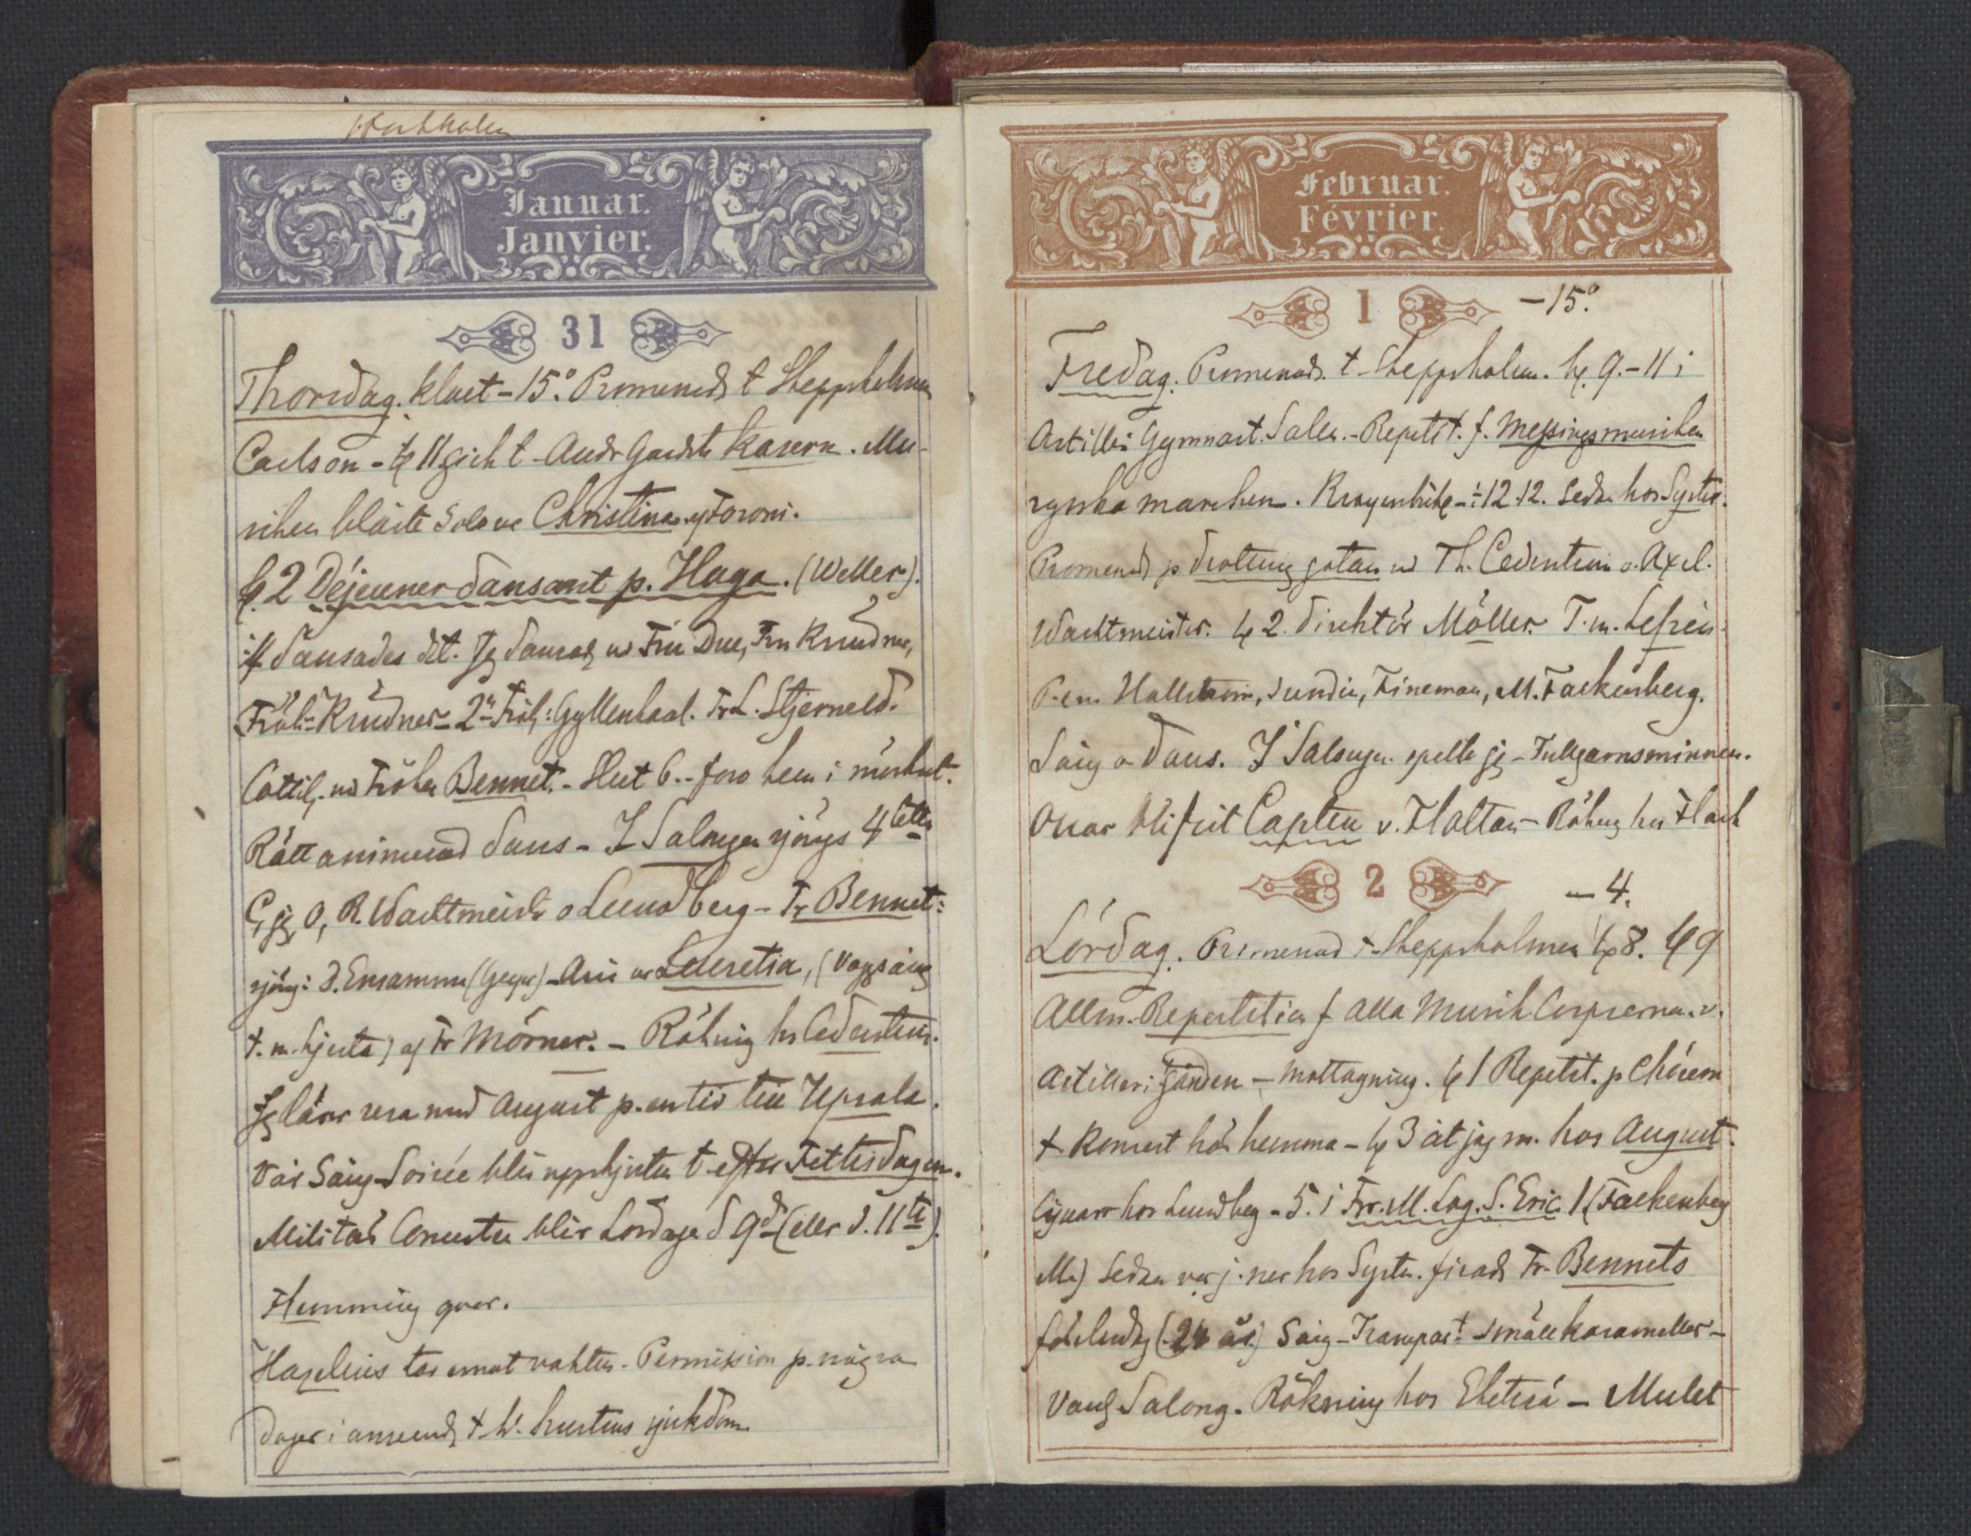 Stockholm
Januar.
Janvier.
31
Thorsdag. klart – 15.° Promenad t Skeppsholmen
Carlson – kl 11 gick t. Andr Gardets Kasern. Mu-
siken blåste Solo ur Christina af Foroni.
kl. 2 Déjeuner dansant p. Haga. (Weller).
dansades det. Jg dansade m Fru Due, Fru Krudner,
Fröh. Krudner – 2n Fröh: Gyllenhaal. Fr L. Stjerneld.
Cottilj. m Fröken Bennet. – Slut 6. – foro hem i mörkret.
Rätt animerad dans – I Salongen sjöngs 4tetter
G, jg, O, R. Wachtmeister o Lundberg – Fr Bennet:
sjöng: d. Ensamma (Geyer) – Aria ur Lucretia, (Vaggsång
t. m. hjerta) af Fr Mörner. – Rökning hs Cederström.
Jg lärer resa med August p. en tid till Upsala.
Vår Sång-Soirée blir uppskjuten t. efter Fettisdagen.
Militär Concerten blir Lördagen d 9de (eller d. 11te).
Hemming qvar.
Hazelius tar emot vakten – Permission p. några
dagar i anseende t. h. hustrus sjukdom.
Februar.
Février.
1
– 15.°
Fredag. Promenad. t. Skeppsholm. kl. 9. – 11 i
Artilleri Gymnast. Salen. – Repetit. f. Messingsmusiken
ryska marchen. – 12. 12. Sedan hos Systr.
Promenad p drottninggatan m Th. Cederström o. Axel.
Wachtmeister. kl 2. direktör Möller. T. m. Lefrén.
P. em. Hallström, Sundin, Fineman, M. Falkenberg.
Sång o dans. I Salongen. spelte jg – Tullgarnsminnen.
Oscar blifvit Capten v. Flottan – Rökning hos Flach
2
– 4.
Lördag. Promenad t. Skeppsholmen kl 8. kl 9
Allm. Repetition f alla Musik Corpserna. v.
Artilleri gården – mottagning. kl 1 Repetit. p Chören
t Konsert hos hemma – kl 3 åt jag m. hos August.
Cigarr hos Lundberg – 5. i Frr. M. Log. S. Eric 1 (Falkenberg
M.) Sedan var j. ner hos Systr. firade Fr. Bennets
födelsedag (24 år) Sång – Transpart – smällkarameller –
Vanl. Salong. Rökning hos – Mulet